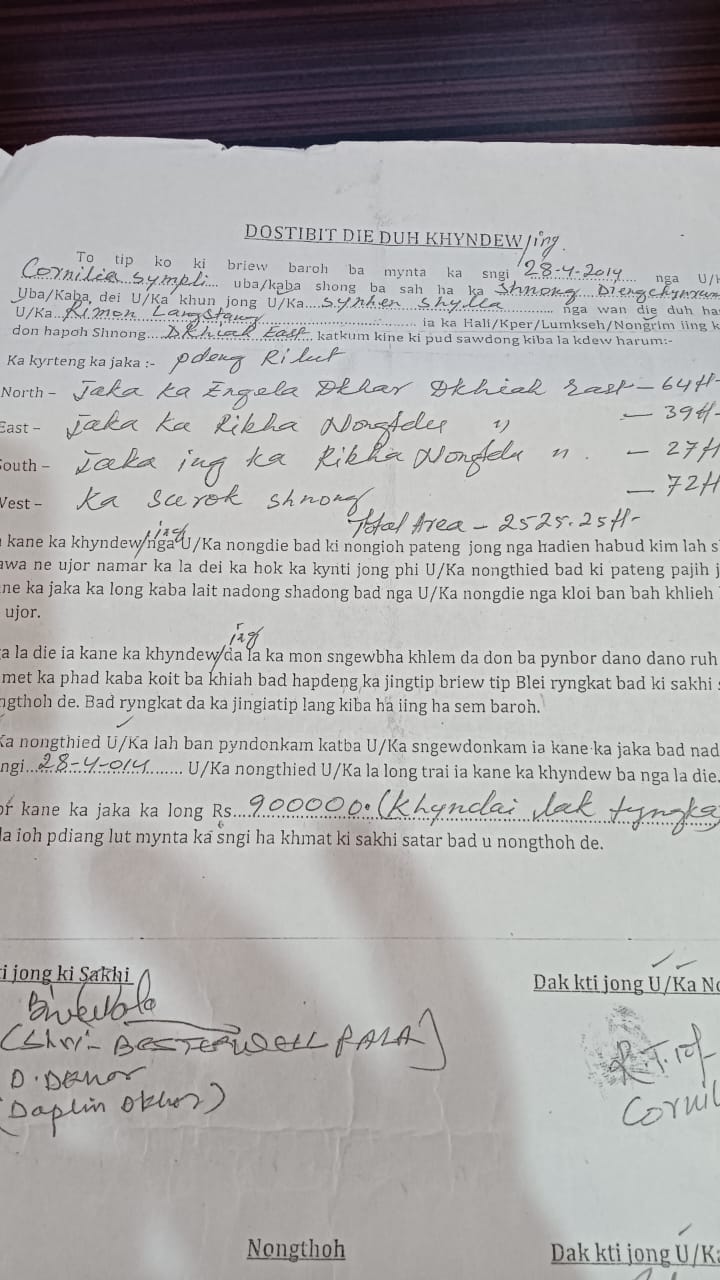 DOSTIBIT DIE DUH KHYNDEW/jing.
To tip ko ki briew baroh ba mynta ka sngi 28-4-2014 nga U/K
Cornilia Sympli uba/kaba shong ba sah ha ka Shnong Diengchynrum
Uba/Kaba, dei U/Ka khun jong U/Ka....Synhen Shylla............. nga wan die duh ha
U/Ka...Rimon Langstang............ ia ka Hali/Kper/Lumkseh/Nongrim iing k
don hapoh Shnong....Dkhiah East.. katkum kine ki pud sawdong kiba la kdew harum:-
Ka kyrteng ka jaka :- Pdeng Rilut
North – Jaka ka Engela Dkhar Dkhiah East – 64ft-
East – Jaka ka Rikha Nongtdu 〃 – 39ft-
South – Jaka ing ka Rikha Nongtdu 〃. – 27ft
West – Ka surok shnong – 72ft
Total Area – 2525.25ft-
kane ka khyndew/ing nga U/Ka nongdie bad ki nongioh pateng jong nga hadien habud kim lah s
awa ne ujor namar ka la dei ka hok ka kynti jong phi U/Ka nongthied bad ki pateng pajih j
ne ka jaka ka long kaba lait nadong shadong bad nga U/Ka nongdie nga kloi ban bah khlieh
ujor.
a la die ia kane ka khyndew/ing da la ka mon sngewbha khlem da don ba pynbor dano dano ruh
met ka phad kaba koit ba khiah bad hapdeng ka jingtip briew tip Blei ryngkat bad ki sakhi
ngthoh de. Bad ryngkat da ka jingiatip lang kiba ha iing ha sem baroh.
Ka nongthied U/Ka lah ban pyndonkam katba U/Ka sngewdonkam ia kane ka jaka bad nad
ngi...28-4-014........ U/Ka nongthied U/Ka la long trai ia kane ka khyndew ba nga la die.
or kane ka jaka ka long Rs....900000.(Khyndai lak tyngka)
la ioh pdiang lut mynta ka sngi ha khmat ki sakhi satar bad u nongthoh de.
ti jong ki Sakhi
Dak kti jong U/Ka No
(Shri- BESTERWELL PALA)
D. Dkhar
(Daplin Dkhar)
R.T.I of
Cornil
Nongthoh
Dak kti jong U/Ka